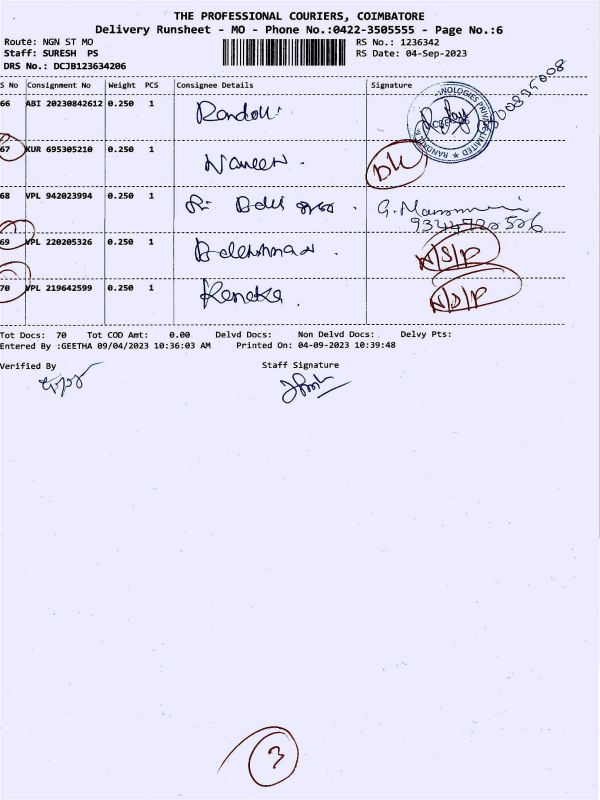 THE PROFESSIONAL COURIERS, COIMBATORE
Delivery Runsheet - MO - Phone No.:0422-3505555 - Page No.:6
Route: NGN ST MO RS No.: 1236342
Staff: SURESH PS RS Date: 04-Sep-2023
DRS No.: DCJB123634206
S No Consignment No Weight PCS Consignee Details Signature
66 ABI 20230842612 0.250 1
67 KUR 695305210 0.250 1 Naveen.
DK
68 VPL 942023994 0.250 1
69 VPL 220205326 0.250 1
N/S/P
70 VPL 219642599 0.250 1
Tot Docs: 70 Tot COD Amt: 0.00 Delvd Docs: Non Delvd Docs: Delvy Pts:
Entered By :GEETHA 09/04/2023 10:36:03 AM Printed On: 04-09-2023 10:39:48
Verified By Staff Signature
3